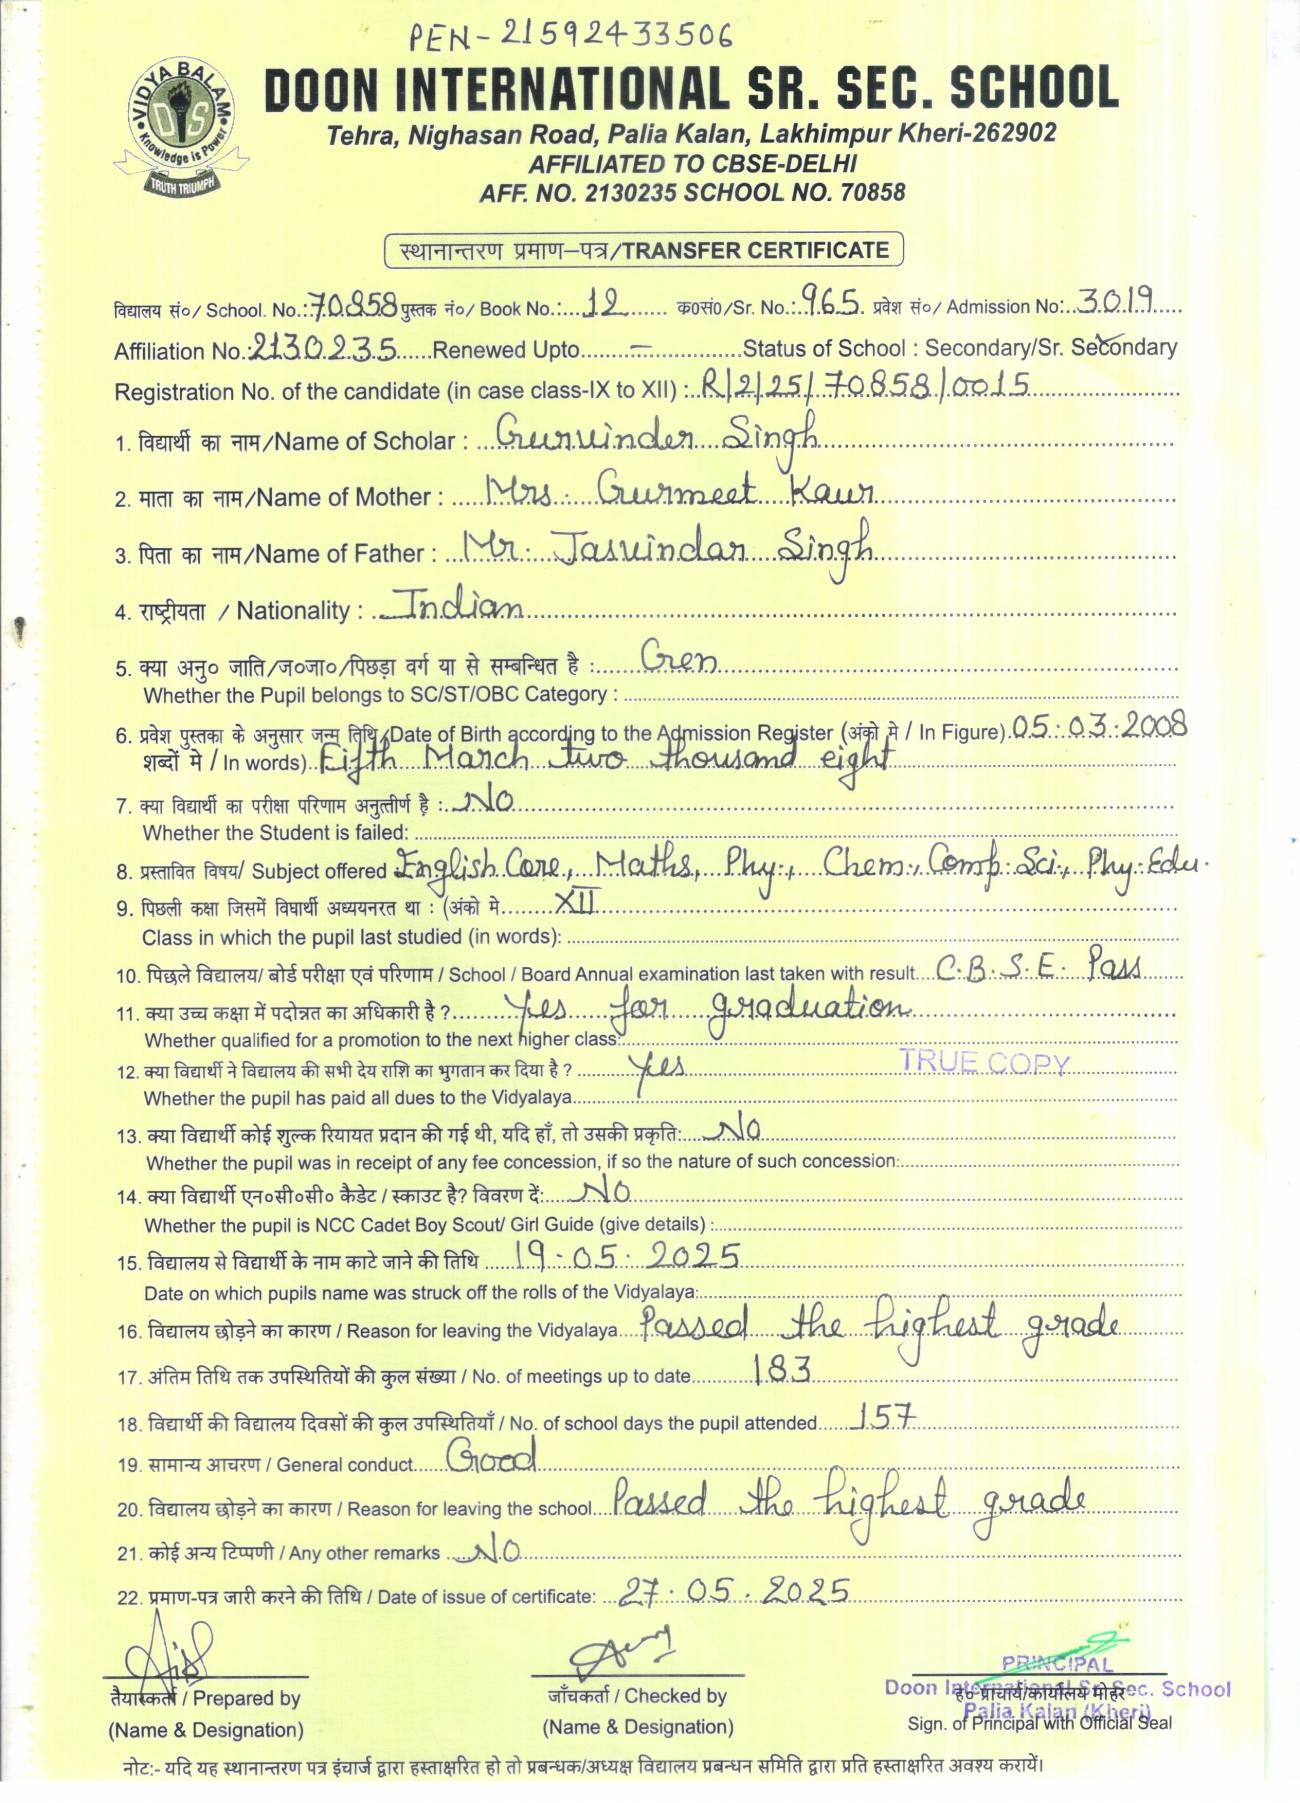 PEN-21592433506
VIDYA BALAM
DIS
Knowledge is Power
TRUTH TRIUMPH
DOON INTERNATIONAL SR. SEC. SCHOOL
Tehra, Nighasan Road, Palia Kalan, Lakhimpur Kheri-262902
AFFILIATED TO CBSE-DELHI
AFF. NO. 2130235 SCHOOL NO. 70858
स्थानान्तरण प्रमाण-पत्र/TRANSFER CERTIFICATE
विद्यालय सं०/ School. No.: 70858 पुस्तक नं०/ Book No.: 12 क०सं०/Sr. No.: 965 प्रवेश सं०/ Admission No: 3019
Affiliation No.: 2130235 Renewed Upto - Status of School : Secondary/Sr. Secondary
Registration No. of the candidate (in case class-IX to XII) : R/2/25/70858/0015
1. विद्यार्थी का नाम/Name of Scholar : Gurvinder Singh
2. माता का नाम/Name of Mother : Mrs. Gurmeet Kaur
3. पिता का नाम/Name of Father : Mr. Jasvindar Singh
4. राष्ट्रीयता / Nationality : Indian
5. क्या अनु० जाति/ज०जा०/पिछड़ा वर्ग या से सम्बन्धित है : Gen
Whether the Pupil belongs to SC/ST/OBC Category :
6. प्रवेश पुस्तका के अनुसार जन्म तिथि/Date of Birth according to the Admission Register (अंको मे / In Figure) 05.03.2008
शब्दों मे / In words) Fifth March two thousand eight
7. क्या विद्यार्थी का परीक्षा परिणाम अनुत्तीर्ण है : NO
Whether the Student is failed:
8. प्रस्तावित विषय/ Subject offered English Core, Maths, Phy., Chem., Comp. Sci., Phy. Edu.
9. पिछली कक्षा जिसमें विघार्थी अध्ययनरत था : (अंको मे XII
Class in which the pupil last studied (in words):
10. पिछले विद्यालय/ बोर्ड परीक्षा एवं परिणाम / School / Board Annual examination last taken with result C.B.S.E. Pass
11. क्या उच्च कक्षा में पदोन्नत का अधिकारी है ? Yes for graduation
Whether qualified for a promotion to the next higher class:
12. क्या विद्यार्थी ने विद्यालय की सभी देय राशि का भुगतान कर दिया है ? Yes
TRUE COPY
Whether the pupil has paid all dues to the Vidyalaya
13. क्या विद्यार्थी कोई शुल्क रियायत प्रदान की गई थी, यदि हाँ, तो उसकी प्रकृति: NO
Whether the pupil was in receipt of any fee concession, if so the nature of such concession:
14. क्या विद्यार्थी एन०सी०सी० कैडेट / स्काउट है? विवरण दें: NO
Whether the pupil is NCC Cadet Boy Scout/ Girl Guide (give details) :
15. विद्यालय से विद्यार्थी के नाम काटे जाने की तिथि 19.05.2025
Date on which pupils name was struck off the rolls of the Vidyalaya:
16. विद्यालय छोड़ने का कारण / Reason for leaving the Vidyalaya Passed the highest grade
17. अंतिम तिथि तक उपस्थितियों की कुल संख्या / No. of meetings up to date 183
18. विद्यार्थी की विद्यालय दिवसों की कुल उपस्थितियाँ / No. of school days the pupil attended 157
19. सामान्य आचरण / General conduct Good
20. विद्यालय छोड़ने का कारण / Reason for leaving the school Passed the highest grade
21. कोई अन्य टिप्पणी / Any other remarks NO
22. प्रमाण-पत्र जारी करने की तिथि / Date of issue of certificate: 27.05.2025
PRINCIPAL
Doon International Sr. Sec. School
Palia Kalan (Kheri)
तैयारकर्ता / Prepared by
(Name & Designation)
जाँचकर्ता / Checked by
(Name & Designation)
ह० प्राचार्य/कार्यालय मोहर
Sign. of Principal with Official Seal
नोट:- यदि यह स्थानान्तरण पत्र इंचार्ज द्वारा हस्ताक्षरित हो तो प्रबन्धक/अध्यक्ष विद्यालय प्रबन्धन समिति द्वारा प्रति हस्ताक्षरित अवश्य करायें।